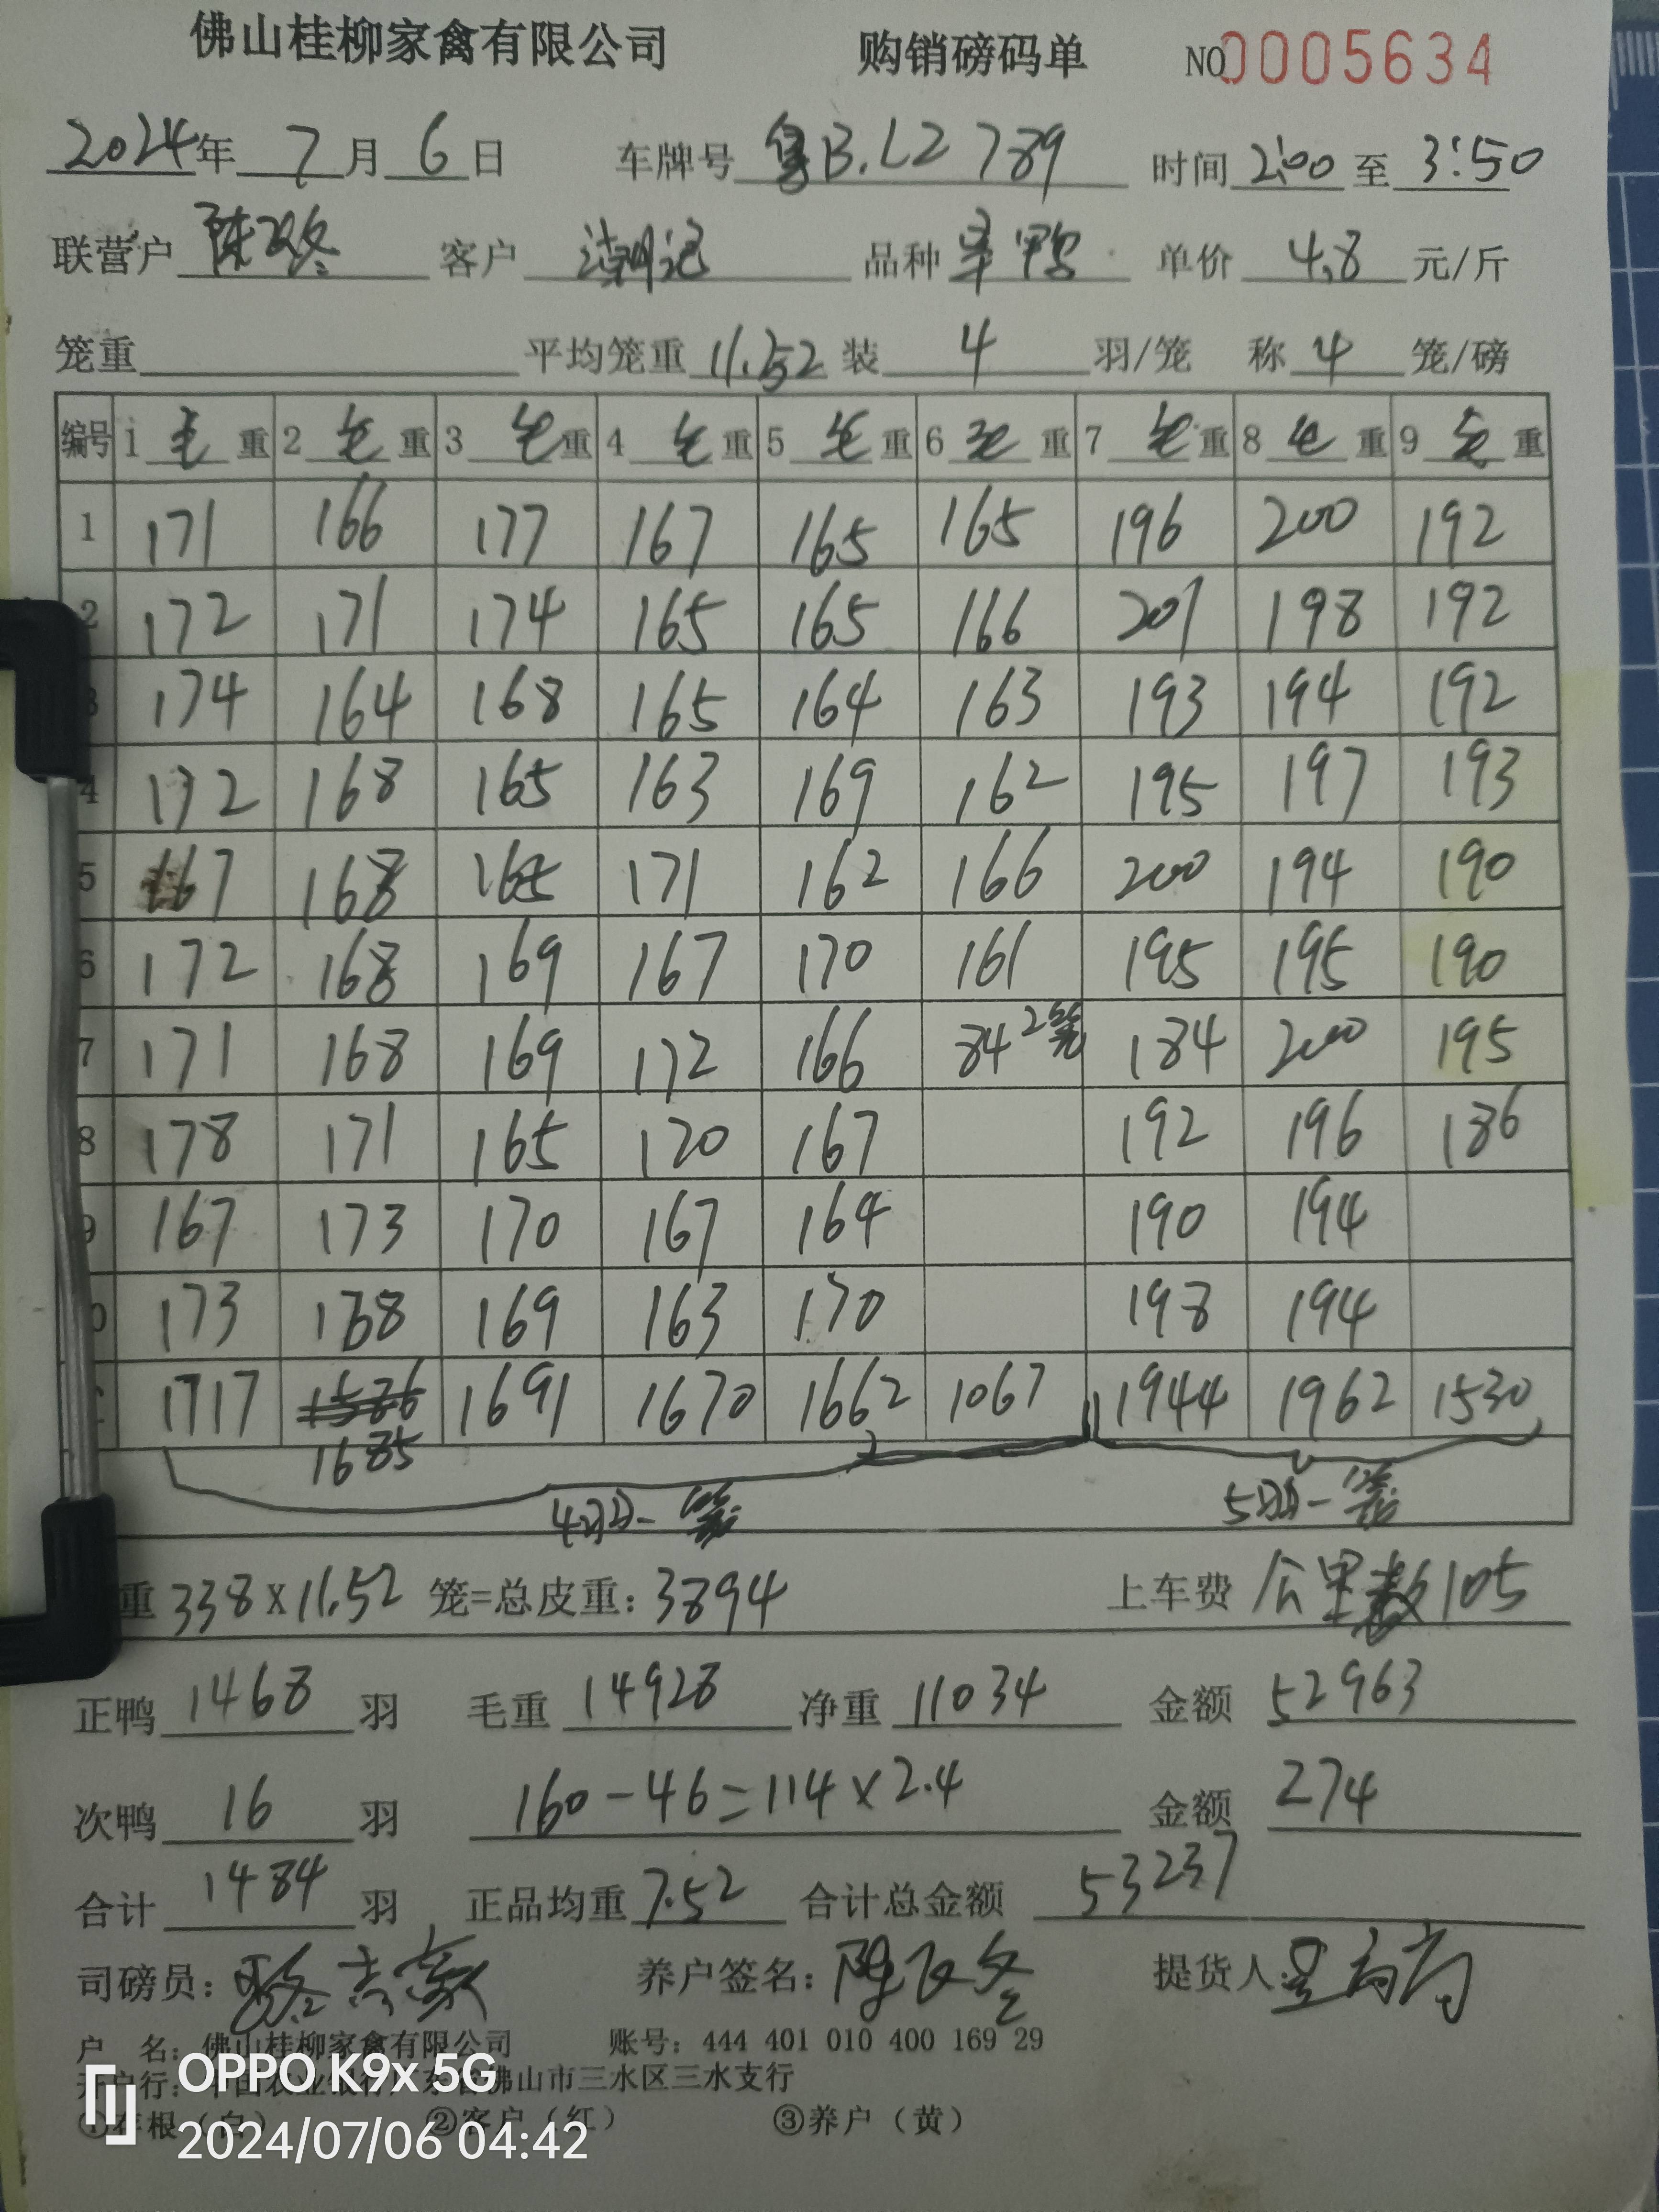 佛山桂柳家禽有限公司 购销磅码单 NO 0005634
2024年 7月 6日 车牌号 粤B.LZ789 时间 2:00 至 3:50
联营户 客户 潮记 品种 单价 4.8 元/斤
笼重 平均笼重 11.52 装 4 羽/笼 称 4 笼/磅
编号 1 毛 重 2 毛 重 3 毛 重 4 毛 重 5 毛 重 6 毛 重 7 毛 重 8 毛 重 9 毛 重
1 171 166 177 167 165 165 196 200 192
2 172 171 174 165 165 166 201 198 192
3 174 164 168 165 164 163 193 194 192
4 172 168 165 163 169 162 195 197 193
5 167 168 165 171 162 166 200 194 190
6 172 168 169 167 170 161 195 195 190
7 171 168 169 172 166 84 2笼 184 200 195
8 178 171 165 170 167 192 196 186
9 167 173 170 167 164 190 194
0 173 168 169 163 170 198 194
1717 1691 1670 1662 1067 1944 1962 1530
1685
4羽一笼 5羽一笼
重 338 X 11.52 笼=总皮重: 3894 上车费 公里数105
正鸭 1468 羽 毛重 14928 净重 11034 金额 52963
次鸭 16 羽 160-46=114×2.4 金额 274
合计 1484 羽 正品均重 7.52 合计总金额 53237
司磅员: 养户签名: 提货人:
户 名: 佛山桂柳家禽有限公司 账号: 444 401 010 400 169 29
开户行: 中国农业银行 东省佛山市三水区三水支行
①存根(白) ②客户(红) ③养户(黄)
OPPO K9x 5G
2024/07/06 04:42